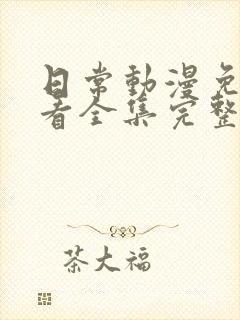 日常動漫免
看全集完整
茶大福